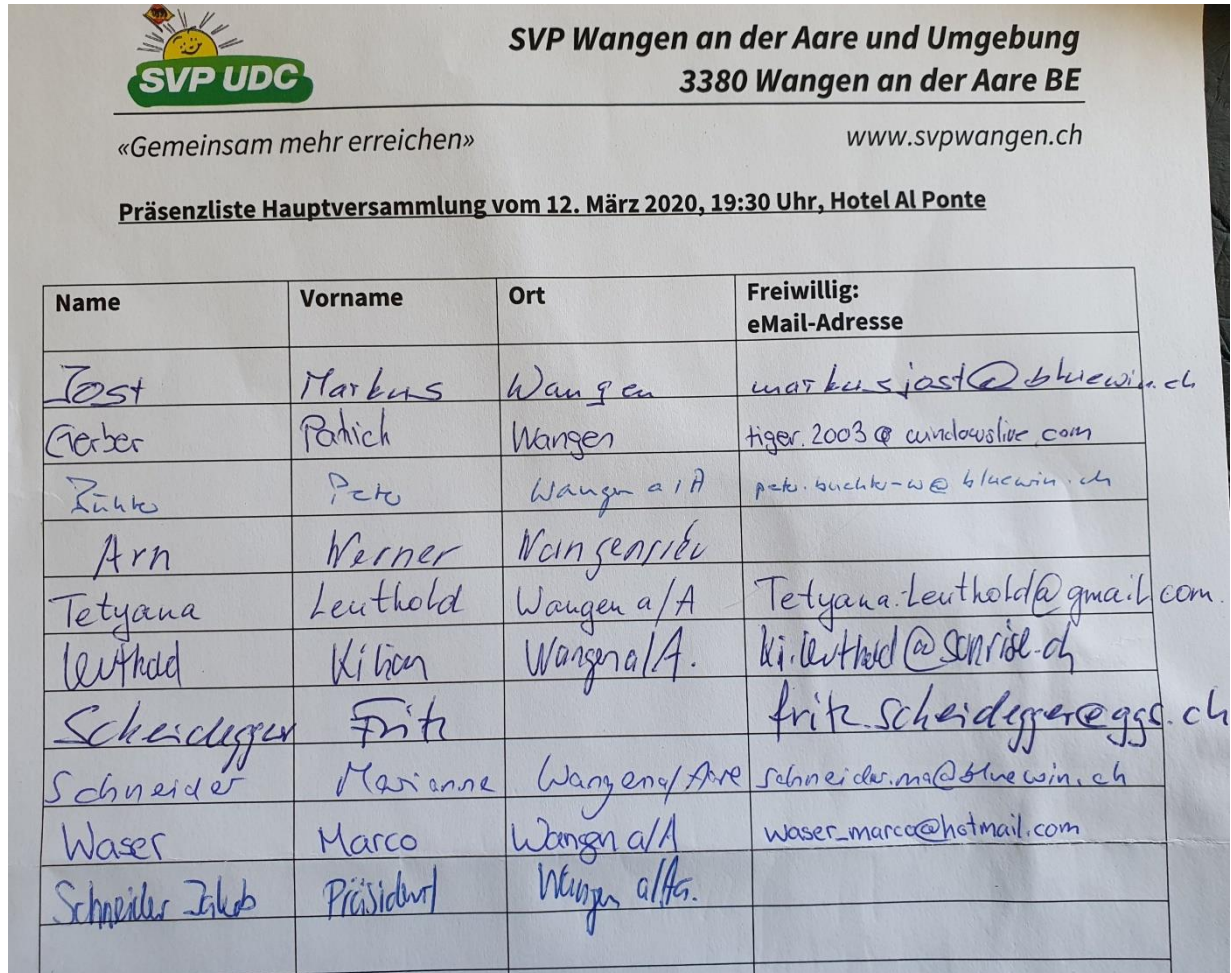 SVP UDC
SVP Wangen an der Aare und Umgebung
3380 Wangen an der Aare BE
«Gemeinsam mehr erreichen» www.svpwangen.ch
Präsenzliste Hauptversammlung vom 12. März 2020, 19:30 Uhr, Hotel Al Ponte
Name Vorname Ort Freiwillig:
eMail-Adresse
Jost Markus Wangen markusjost@bluewin.ch
Gerber Patrick Wangen tiger.2003@windowslive.com
Peter Wangen a/A
Arn Werner Wangenried
Tetyana Leuthold Wangen a/A Tetyana.Leuthold@gmail.com.
Leuthold Kilian Wangen a/A. ki.leuthold@sunrise.ch
Scheidegger Fritz fritz.scheidegger@ggs.ch
Schneider Marianne Wangen a/Aare schneider.ma@bluewin.ch
Waser Marco Wangen a/A waser_marco@hotmail.com
Schneider Jakob Präsident Wangen a/Aa.